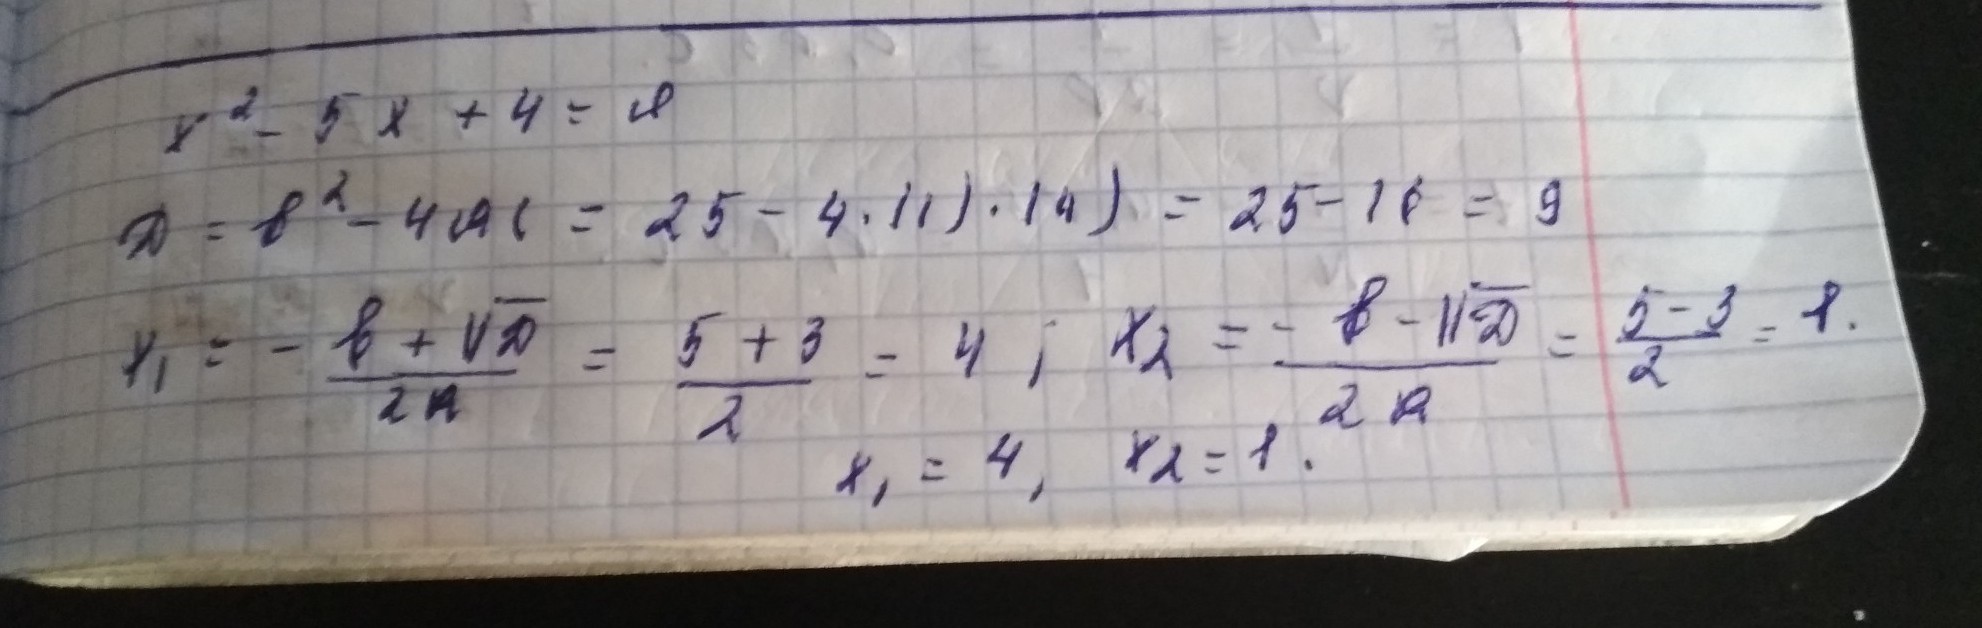 x² - 5x + 4 = 0
D = b² - 4ac = 25 - 4·(1)·(4) = 25 - 16 = 9
x₁ = -b + √D / 2a = 5 + 3 / 2 = 4; x₂ = -b - √D / 2a = 5 - 3 / 2 = 1.
x₁ = 4, x₂ = 1.